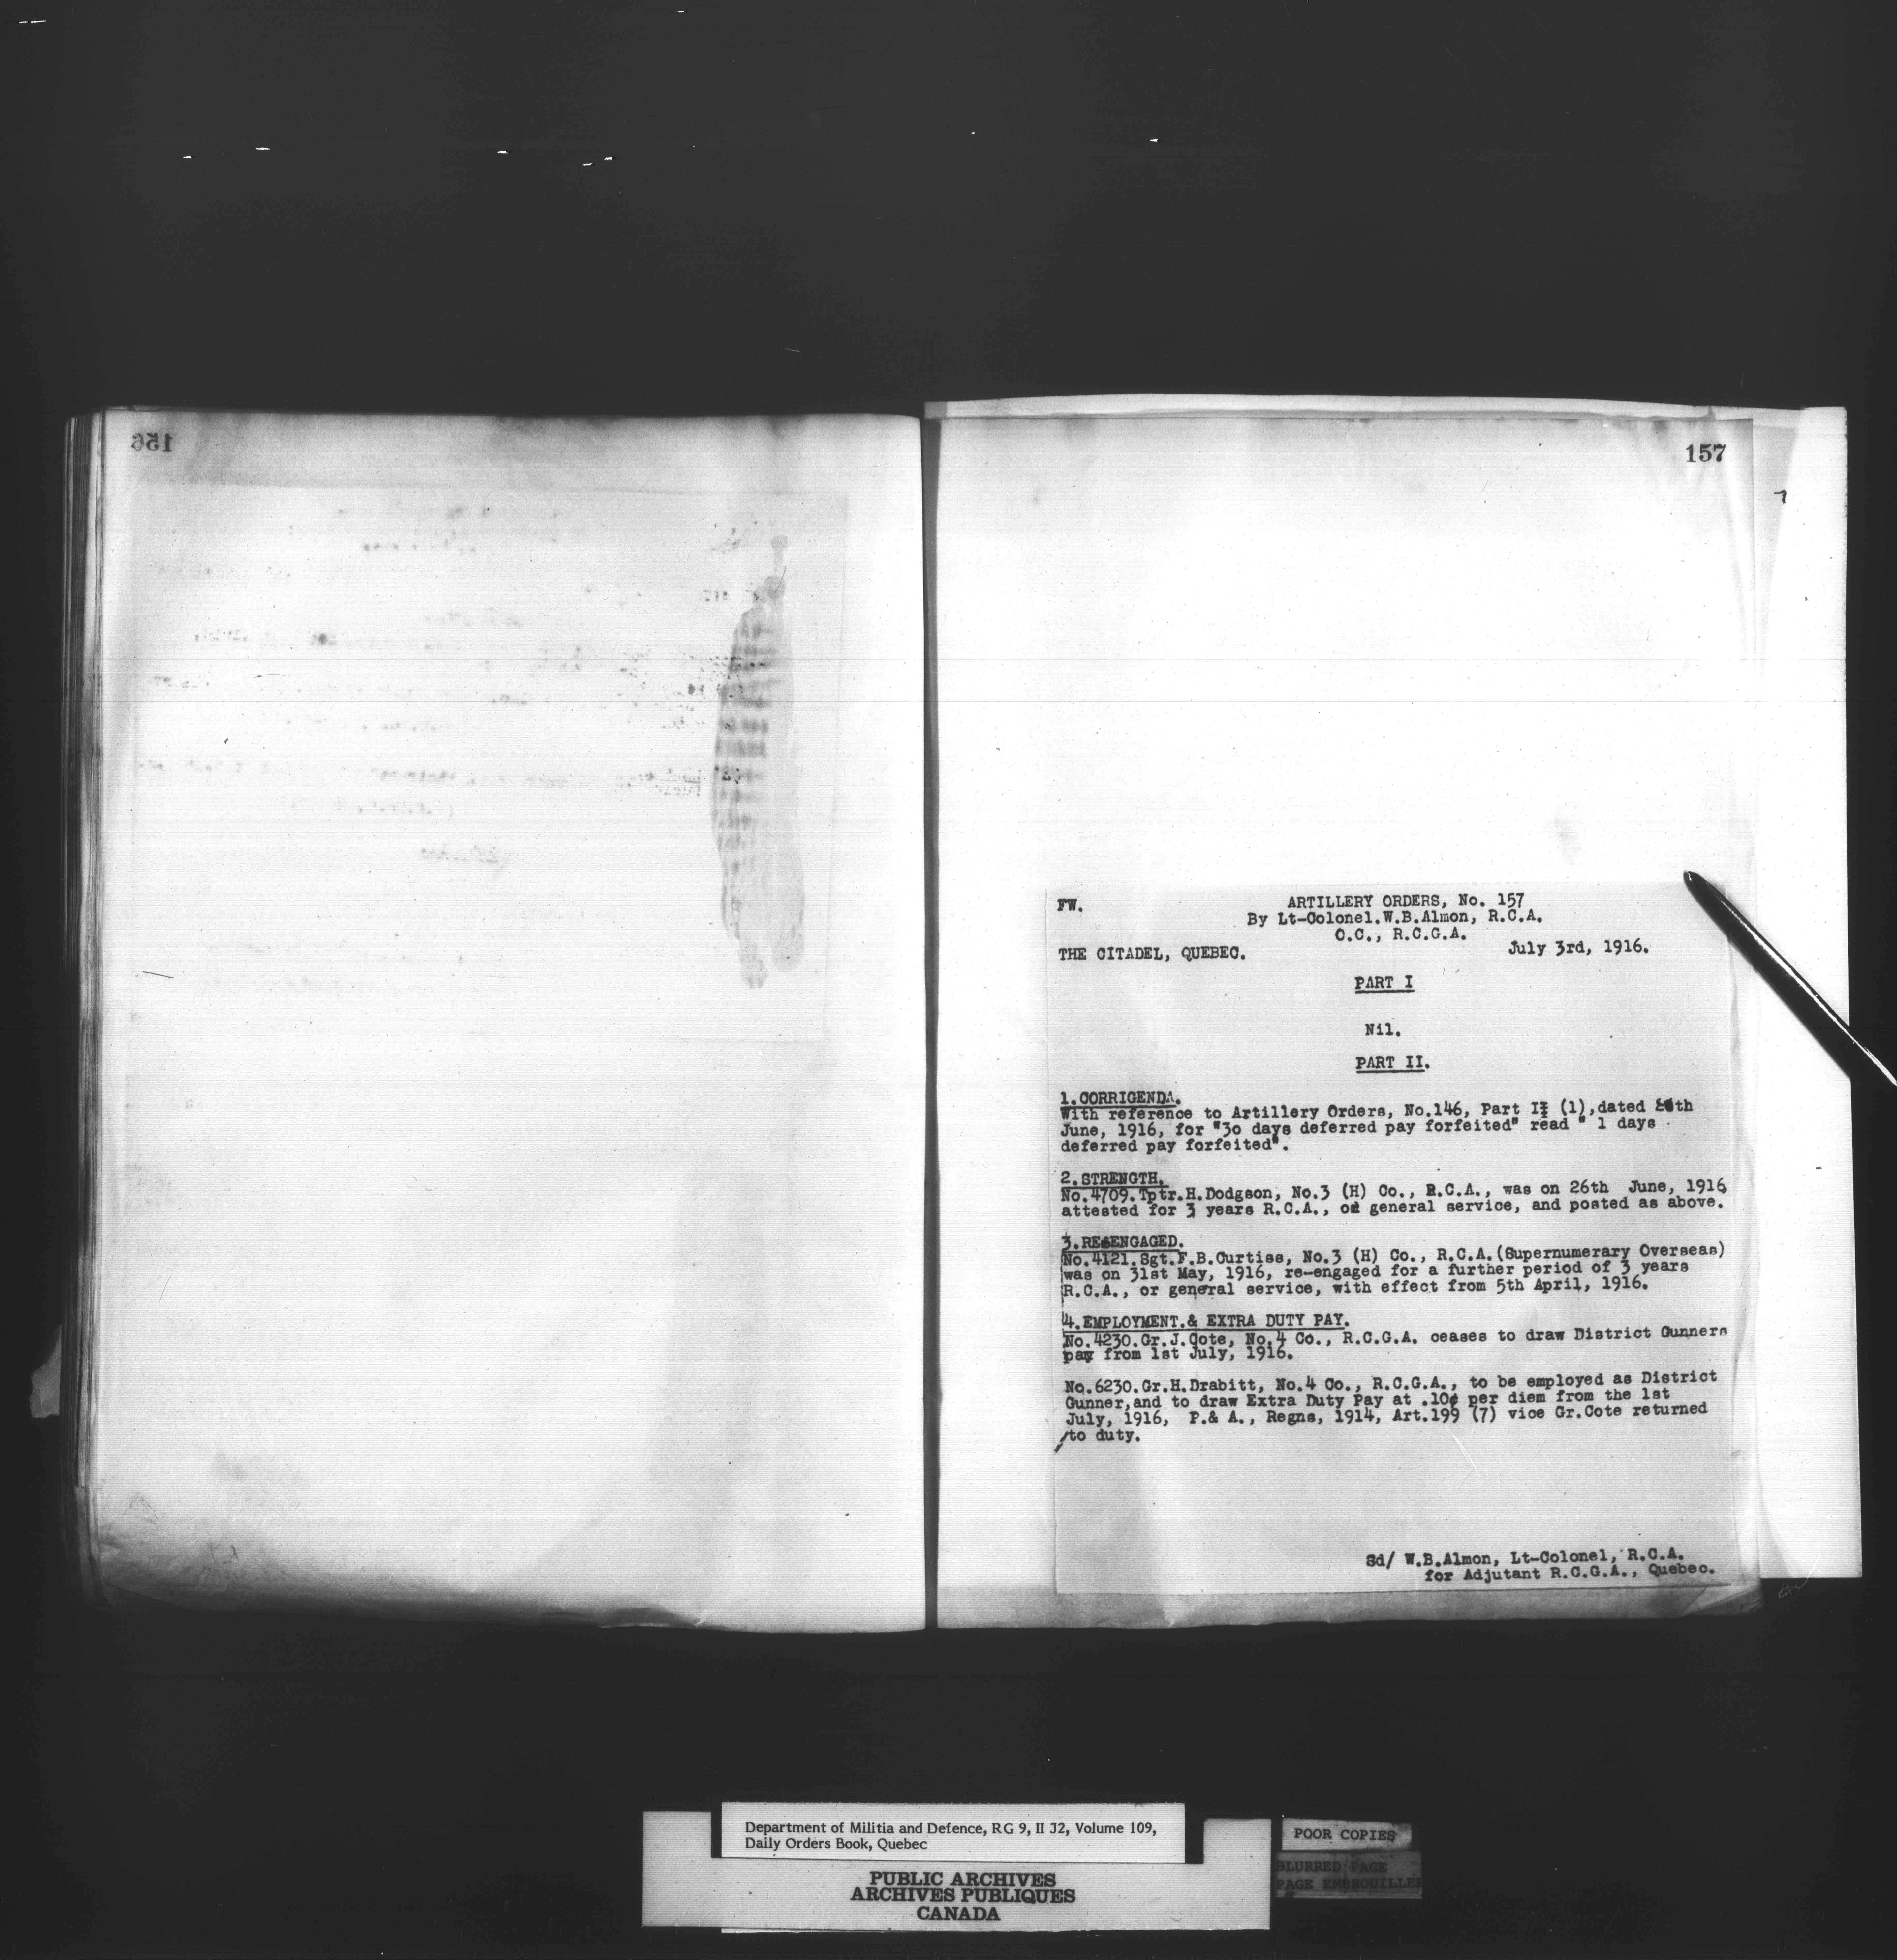 156
157
FW.
ARTILLERY ORDERS, No. 157
By Lt-Colonel.W.B.Almon, R.C.A.
O.C., R.C.G.A.
THE CITADEL, QUEBEC. July 3rd, 1916.
PART I
Nil.
PART II.
1.CORRIGENDA.
With reference to Artillery Orders, No.146, Part II (1),dated th
June, 1916, for "30 days deferred pay forfeited" read " 1 days
deferred pay forfeited".
2.STRENGTH.
No.4709.Tptr.H.Dodgson, No.3 (H) Co., R.C.A., was on 26th June, 1916
attested for 3 years R.C.A., or general service, and posted as above.
3.REENGAGED.
No.4121.Sgt.F.B.Curtiss, No.3 (H) Co., R.C.A.(Supernumerary Overseas)
was on 31st May, 1916, re-engaged for a further period of 3 years
R.C.A., or general service, with effect from 5th April, 1916.
4.EMPLOYMENT.& EXTRA DUTY PAY.
No.4230.Gr.J.Cote, No.4 Co., R.C.G.A. ceases to draw District Gunners
pay from 1st July, 1916.
No.6230.Gr.H.Drabitt, No.4 Co., R.C.G.A., to be employed as District
Gunner,and to draw Extra Duty Pay at .10¢ per diem from the 1st
July, 1916, P.& A., Regns, 1914, Art.199 (7) vice Gr.Cote returned
to duty.
Sd/ W.B.Almon, Lt-Colonel, R.C.A.
for Adjutant R.C.G.A., Quebec.
Department of Militia and Defence, RG 9, II J2, Volume 109,
Daily Orders Book, Quebec
PUBLIC ARCHIVES
ARCHIVES PUBLIQUES
CANADA
POOR COPIES
BLURRED PAGE
PAGE EMBROUILLEE